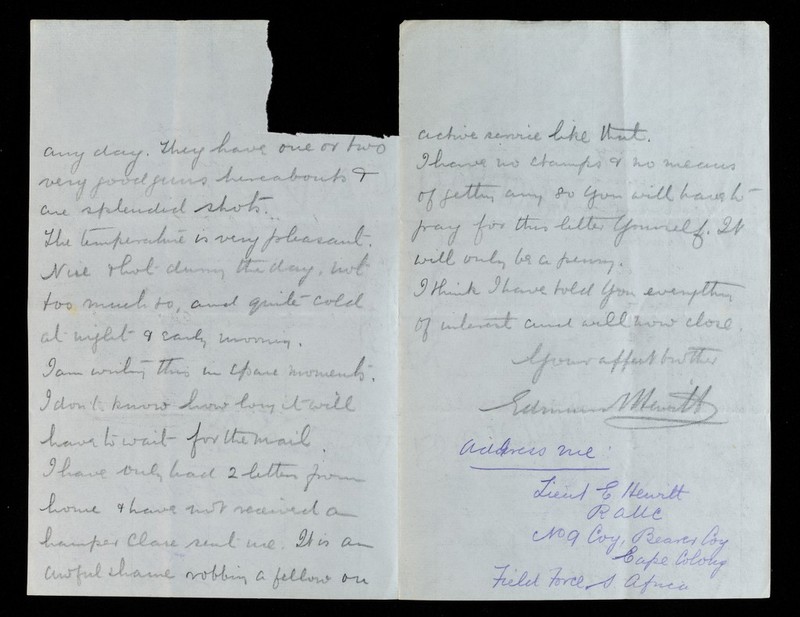 any day. They have one or two
very good guns hereabouts &
are splendid shots.
The temperature is very pleasant.
Nice & hot during the day, not
too much so, and quite cold
at night & early morning.
I am writing this in spare moments.
I don't know how long it will
have to wait for the mail.
I have only had 2 letters from
home & have not received a
hamper Clare sent me. It is an
awful shame robbing a fellow on
active service like that.
I have no stamps & no means
of getting any so you will have to
pay for this letter yourself. It
will only be a penny.
I think I have told you everything
of interest and will now close.
Your affect brother
Edmund Hewitt
Address me
Lieut E Hewitt
RAMC
No 9 Coy, Bearer Coy
Cape Colony
Field Force S Africa